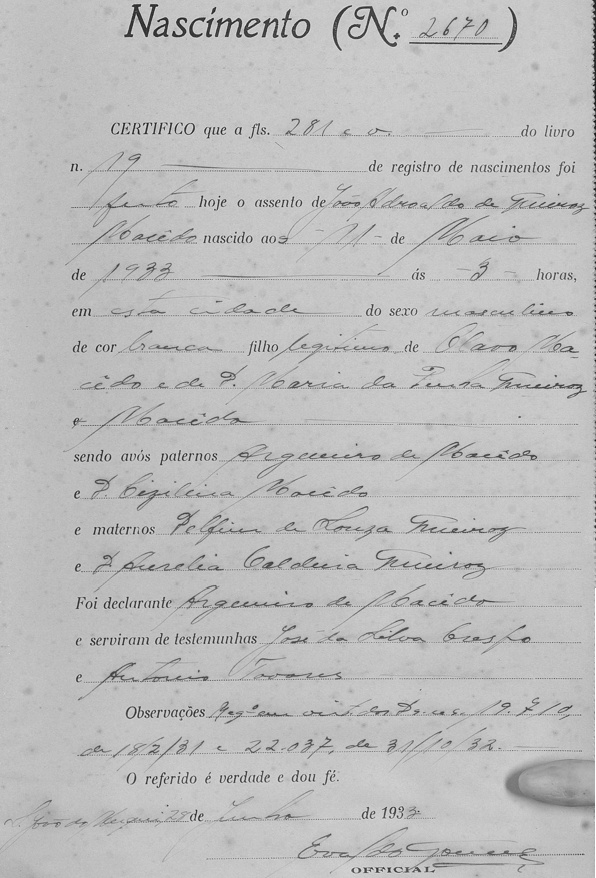 Nascimento (N.º 2670)
CERTIFICO que a fls. 281 e v. do livro
n. 19 de registro de nascimentos foi
feito hoje o assento de João de Queiroz
Macêdo nascido aos 11 de Maio
de 1933 ás 3 horas,
em esta cidade do sexo masculino
de cor branca filho legitimo de Olavo Ma
cêdo e de D. Maria da Queiroz
e Macêdo
sendo avós paternos Argemiro de Macêdo
e D. Cizilina Macêdo
e maternos Delfim de Souza Queiroz
e D. Aurelia Caldeira Queiroz
Foi declarante Argemiro de Macêdo
e serviram de testemunhas José da Silva Crespo
e Antonio Tavares
Observações em dos Decs. 19.710,
de 18/2/31 e 22.037, de 31/10/32.
O referido é verdade e dou fé.
28 de Junho de 1933
Evaldo Gomes
OFFICIAL